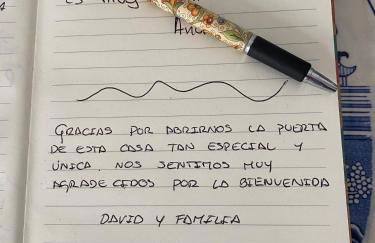 es muy
An
GRACIAS POR ABRIRNOS LA PUERTA
DE ESTA CASA TAN ESPECIAL Y
ÚNICA. NOS SENTIMOS MUY
AGRADECIDOS POR LA BIENVENIDA
DAVID Y FAMILIA